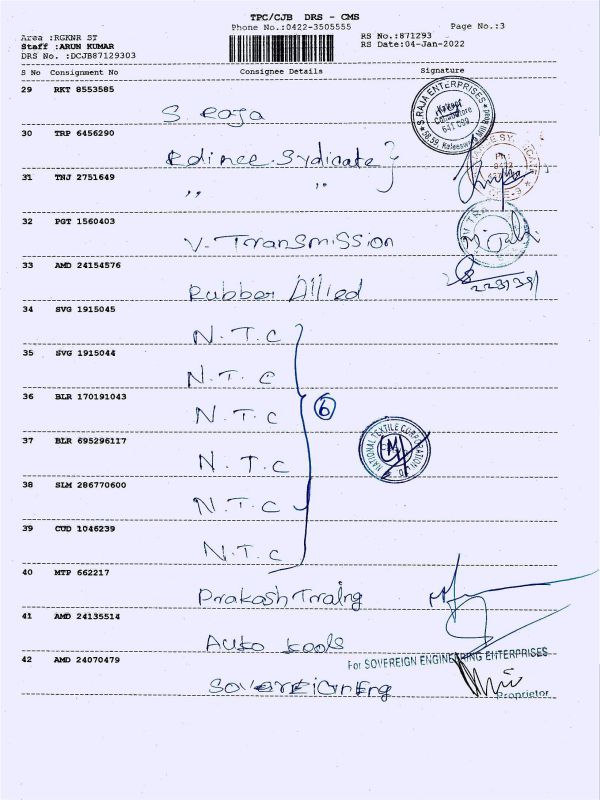 TPC/CJB DRS - CMS
Phone No.:0422-3505555
Page No.:3
Area :RGKNR ST
Staff :ARUN KUMAR
DRS No. :DCJB87129303
RS No.:871293
RS Date:04-Jan-2022
S No Consignment No Consignee Details Signature
29 RKT 8553585
S Raja
S.RAJA ENTERPRISES
Coimbatore
641 009
Kaleeswara Mill Road
30 TRP 6456290
Edinee. Sydicate
31 TNJ 2751649
,, ,,
32 PGT 1560403
V. Transmission
33 AMD 24154576
Rubber Allied
34 SVG 1915045
N.T.C
35 SVG 1915044
N.T.C
36 BLR 170191043
N.T.C
6
37 BLR 695296117
N.T.C
NATIONAL TEXTILE CORPORATION
38 SLM 286770600
N.T.C
39 CUD 1046239
N.T.C
40 MTP 662217
Prakash
41 AMD 24135514
Auto
42 AMD 24070479
Sovereign Eng
For SOVEREIGN ENGINEERING ENTERPRISES
Proprietor